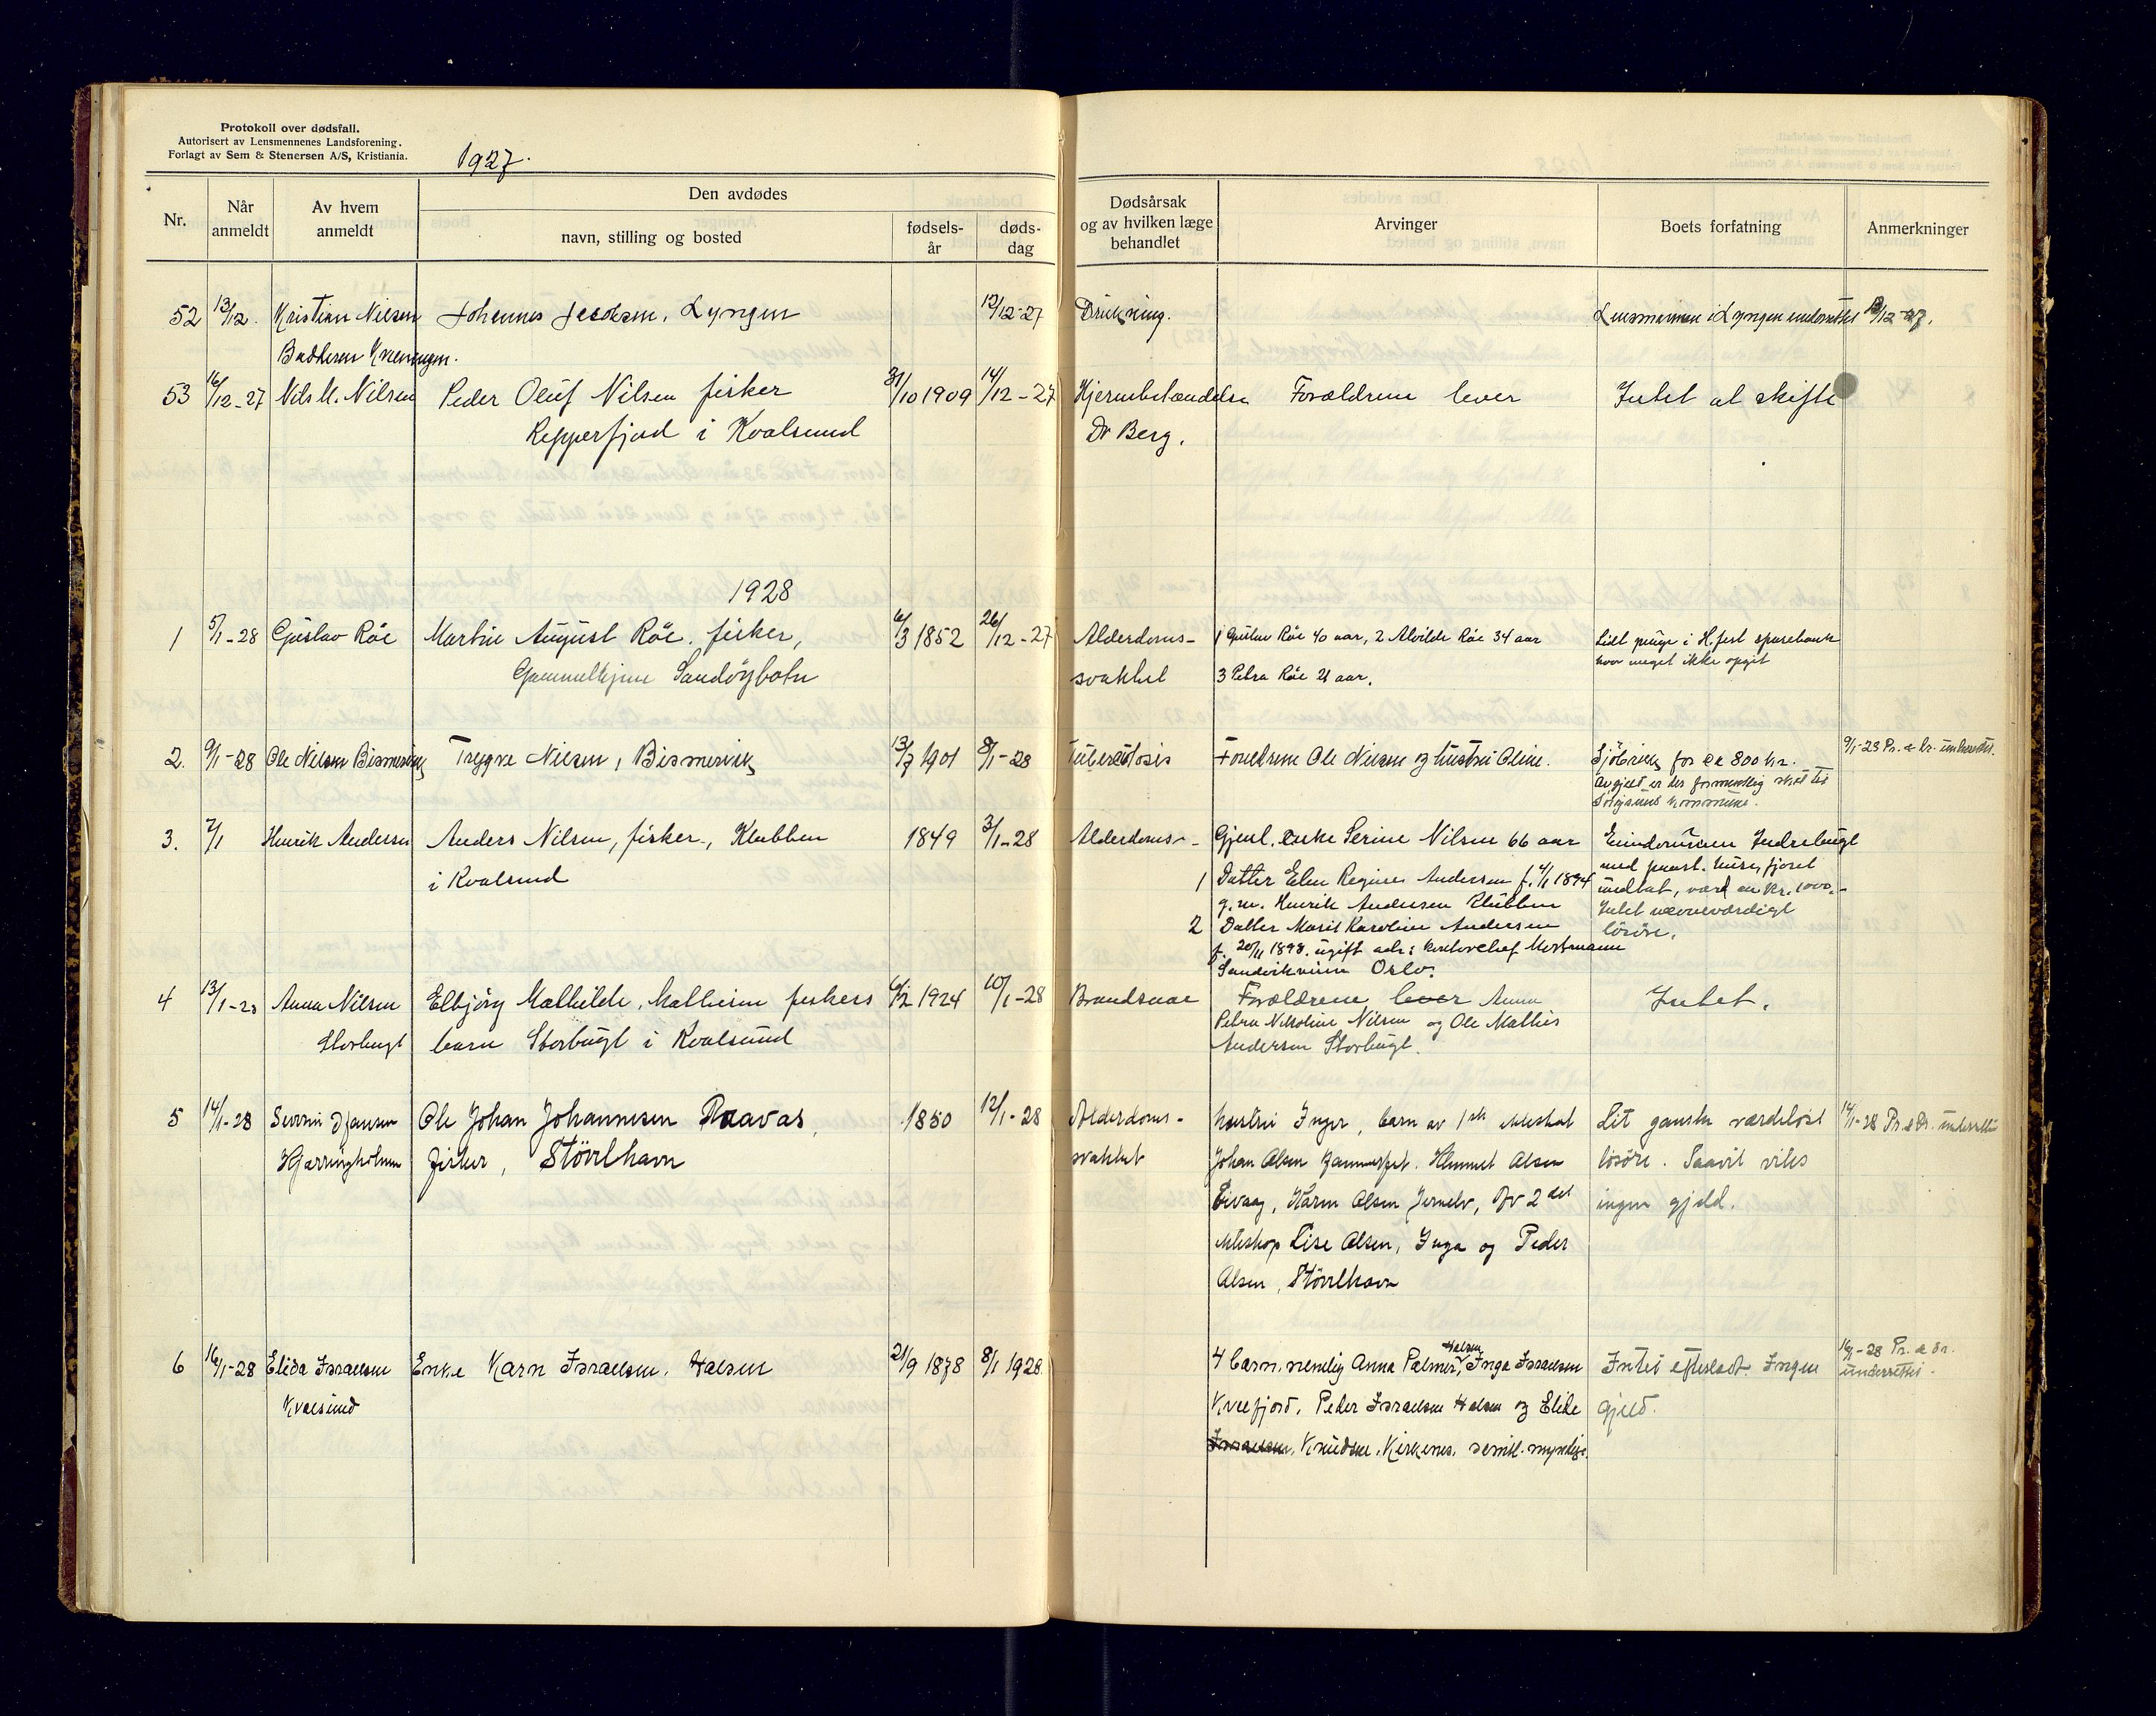 Protokoll over dødsfall.
Autorisert av Lensmennenes Landsforening.
Forlagt av Sem & Stenersen A/S, Kristiania.
1927.
Nr.
Når anmeldt
Av hvem anmeldt
Den avdødes
navn, stilling og bosted
fødsels-år
døds-dag
Dødsårsak og av hvilken læge behandlet
Arvinger
Boets forfatning
Anmerkninger
52 13/12. Kristian Nielsen Johannes Jacobsen, Lyngen 12/12-27 Drukning. Lensmannen i Lyngen underrettet 13/12-27.
53 16/12-27 Nils M. Nilsen Peder Oluf Nilsen fisker 31/10 1909 14/12-27 Hjernebetændelse Forældrene lever Intet at skifte
Repperfjord i Kvalsund Dr Berg.
1928
1 5/1-28 Gustav Röe Martin August Röe, fisker, 6/3 1852 26/12-27 Alderdoms- 1 Gustav Röe 40 aar, 2 Alvilde Röe 34 aar Lidt penge i H.fest sparebank
Gammelhjem Sandöybotn svakhet 3 Petra Röe 21 aar. hvor meget ikke opgit
2. 9/1-28 Ole Nilsen Bismervik Trygve Nilsen, Bismervik 13/7 1901 8/1-28 Tuberculosis Foreldrene Ole Nilsen og hustru Oline. Sjöbruk for ca 800 kr. 9/1-28 Pr. & Dr. underrettet.
Avgjeld er der formentlig
Sörøysund kommune.
3. 7/1 Henrik Andersen Anders Nilsen, fisker, Klubben 1849 3/1-28 Alderdoms- Gjenl. enke Serine Nilsen 66 aar Eiendommen Indrebugt
i Kvalsund 1 Datter Elen Regine Andersen f. 4/1 1894 med paast. huse, fjöset
g.m. Henrik Andersen Klubben indbat, værd ca kr. 1000.-
2 Datter Marit Karoline Andersen Intet nævneværdigt
f. 20/11 1898. ugift adr: kontorchef Mostmann lösöre.
Sandvikveien Oslo.
4 13/1-28 Anna Nilsen Elbjörg Mathilde Mathisen fiskers 6/2 1924 10/1-28 Brandsaar Forældrene lever Anna Intet.
Storbugt barn Storbugt i Kvalsund Petra Nikoline Nilsen og Ole Mathis
Andersen Storbugt.
5 14/1-28 Ole Johan Johannesen Ravas, 1850 12/1-28 Alderdoms- hustru Inger, barn av 1ste ekteskab Lit ganske værdelöst 14/1-28 Pr. & Dr. underrettet
Kjerringholmen fisker, Störrlhavn svakhet Johan Olsen Hammerfest. Klemmet Olsen lösöre. Saavit vites
Karen Olsen Jernelv, Av 2det ingen gjeld.
ekteskap Lise Olsen, Inga og Peder
Olsen, Störrlhavn
6 16/1-28 Elida Israelsen Enke Karn Israelsen, Halsen 21/9 1878 8/1 1928. 4 barn, nemelig Anna Palmer, Halsen Inga Israelsen Intet efterladt. Ingen 16/1-28 Pr. & Dr.
Kvalsund Kvalfjord, Peder Israelsen Halsen og Elida gjeld. underrettet.
Israelsen, Knudsen, Kirkenes, samtl. myndige.